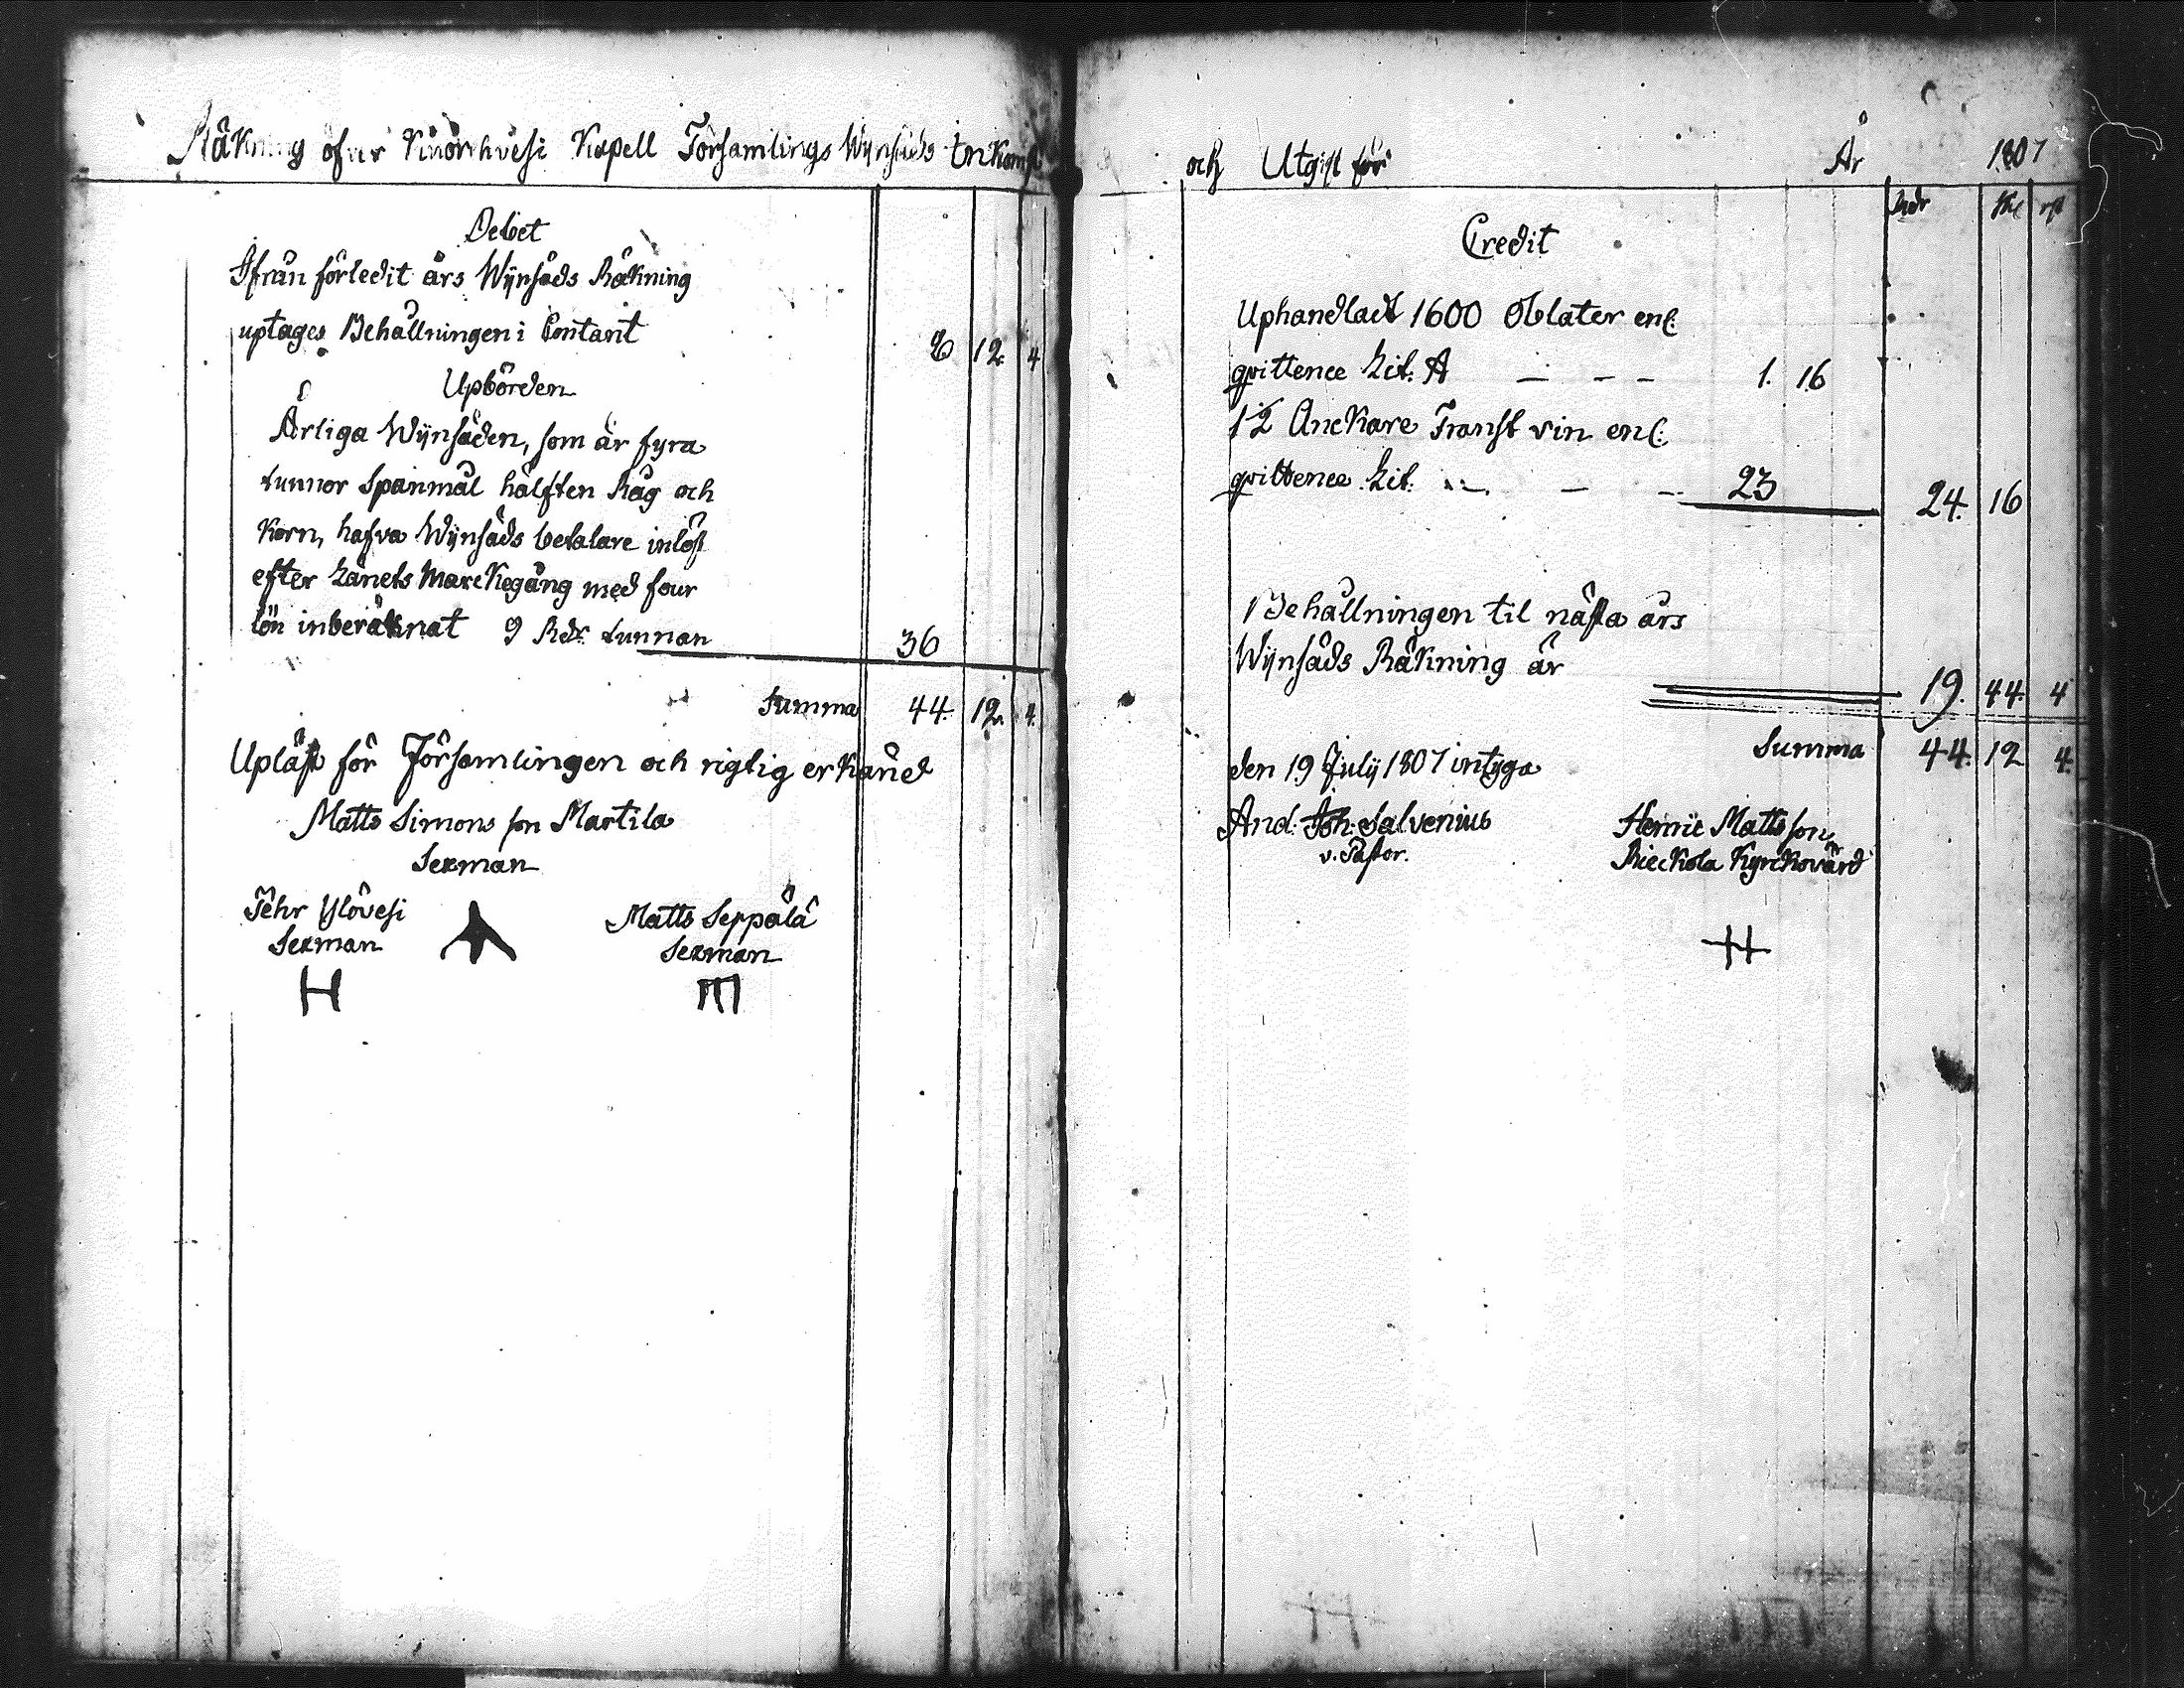 Räkning öfver Kuorehvesi Kapell Församlings Wijnsäds Inkomst
Debet
Ifrån förledit års Wijnsäds Räkning
uptages Behållningen i Contant 8 12. 4
Upbörden
Årliga Wijnsäden, som är fyra
tunnor Spanmål hälften Råg och
Korn, hafva Wijnsäds betalare inlöst
efter Länets Marckegång med four
lön inberäknat 9 Rdr tunnan 36
Summa 44. 12. 4.
Upläst för Församlingen och rigtig erkänd
Matts Simons son Martila
Sexman
Pehr Ylövesi
Sexman
H
Matts Seppälä
Sexman
och Utgift för År 1807
Rdr sk rst
Credit
Uphandladt 1600 Oblater enl:
qvittence Lit: A — — — 1. 16
1/2 Anckare Franst vin enl:
qvittence Lit: — — 23 24. 16
Behållningen til nästa års
Wijnsäds Räkning är 19. 44. 4
Summa 44. 12 4.
den 19 Julij 1807 intyga
And: Joh: Salvenius
v. Pastor.
Henric Mattsson
Rieckola Kyrckovärd